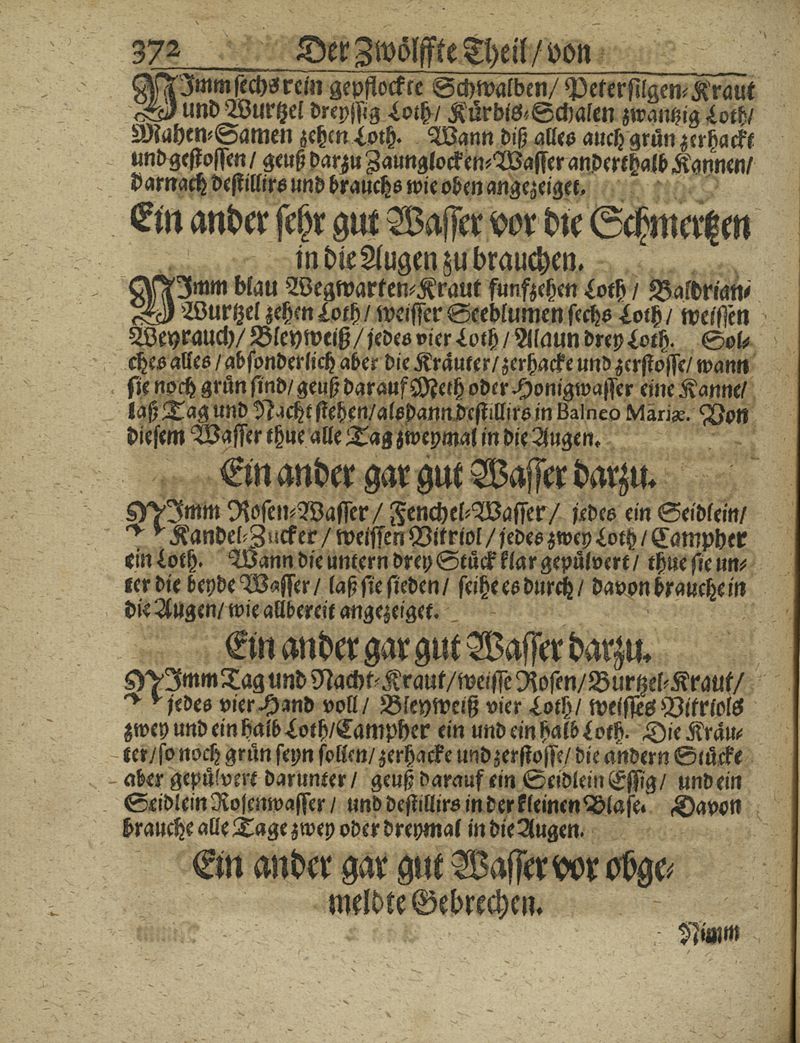 372 Der Zwölffte Theil/von
NImm sechs rein gepflockte Schwalben/ Petersilgen-Kraut
und Wurtzel dreyssig Loth/ Kürbis-Schalen zwantzig Loth/
Mahen-Samen zehen Loth. Wann diß alles auch grün zerhackt
und gestossen/ geuß darzu Zaunglocken-Wasser anderthalb Kannen/
darnach destillirs und brauchs wie oben angezeiget.
Ein ander sehr gut Wasser vor die Schmertzen
in die Augen zu brauchen.
NImm blau Wegwarten-Kraut funfzehen Loth/ Baldrian-
Wurtzel zehen Loth/ weisser Seeblumen sechs Loth/ weissen
Weyrauch/ Bleyweiß/ jedes vier Loth/ Alaun drey Loth. Sol-
ches alles/ absonderlich aber die Kräuter/ zerhacke und zerstosse/ wann
sie noch grün sind/ geuß darauf Meth oder Honigwasser eine Kanne/
laß Tag und Nacht stehen/ alsdann destillirs in Balneo Mariæ. Von
diesem Wasser thue alle Tag zweymal in die Augen.
Ein ander gar gut Wasser darzu.
NImm Rosen-Wasser/ Fenchel-Wasser/ jedes ein Seidlein/
Kandel-Zucker/ weissen Vitriol/ jedes zwey Loth/ Campher
ein Loth. Wann die untern drey Stück klar gepülvert/ thue sie un-
ter die beyde Wasser/ laß sie sieden/ seihe es durch/ davon brauche in
die Augen/ wie allbereit angezeiget.
Ein ander gar gut Wasser darzu.
NImm Tag und Nacht-Kraut/ weisse Rosen/ Burtzel-Kraut/
jedes vier Hand voll/ Bleyweiß vier Loth/ weisses Vitriols
zwey und ein halb Loth/ Campher ein und ein halb Loth. Die Kräu-
ter/ so noch grün seyn sollen/ zerhacke und zerstosse/ die andern Stücke
aber gepülvert darunter/ geuß darauf ein Seidlein Essig/ und ein
Seidlein Rosenwasser/ und destillirs in der kleinen Blase. Davon
brauche alle Tage zwey oder dreymal in die Augen.
Ein ander gar gut Wasser vor obge-
meldte Gebrechen.
Nimm